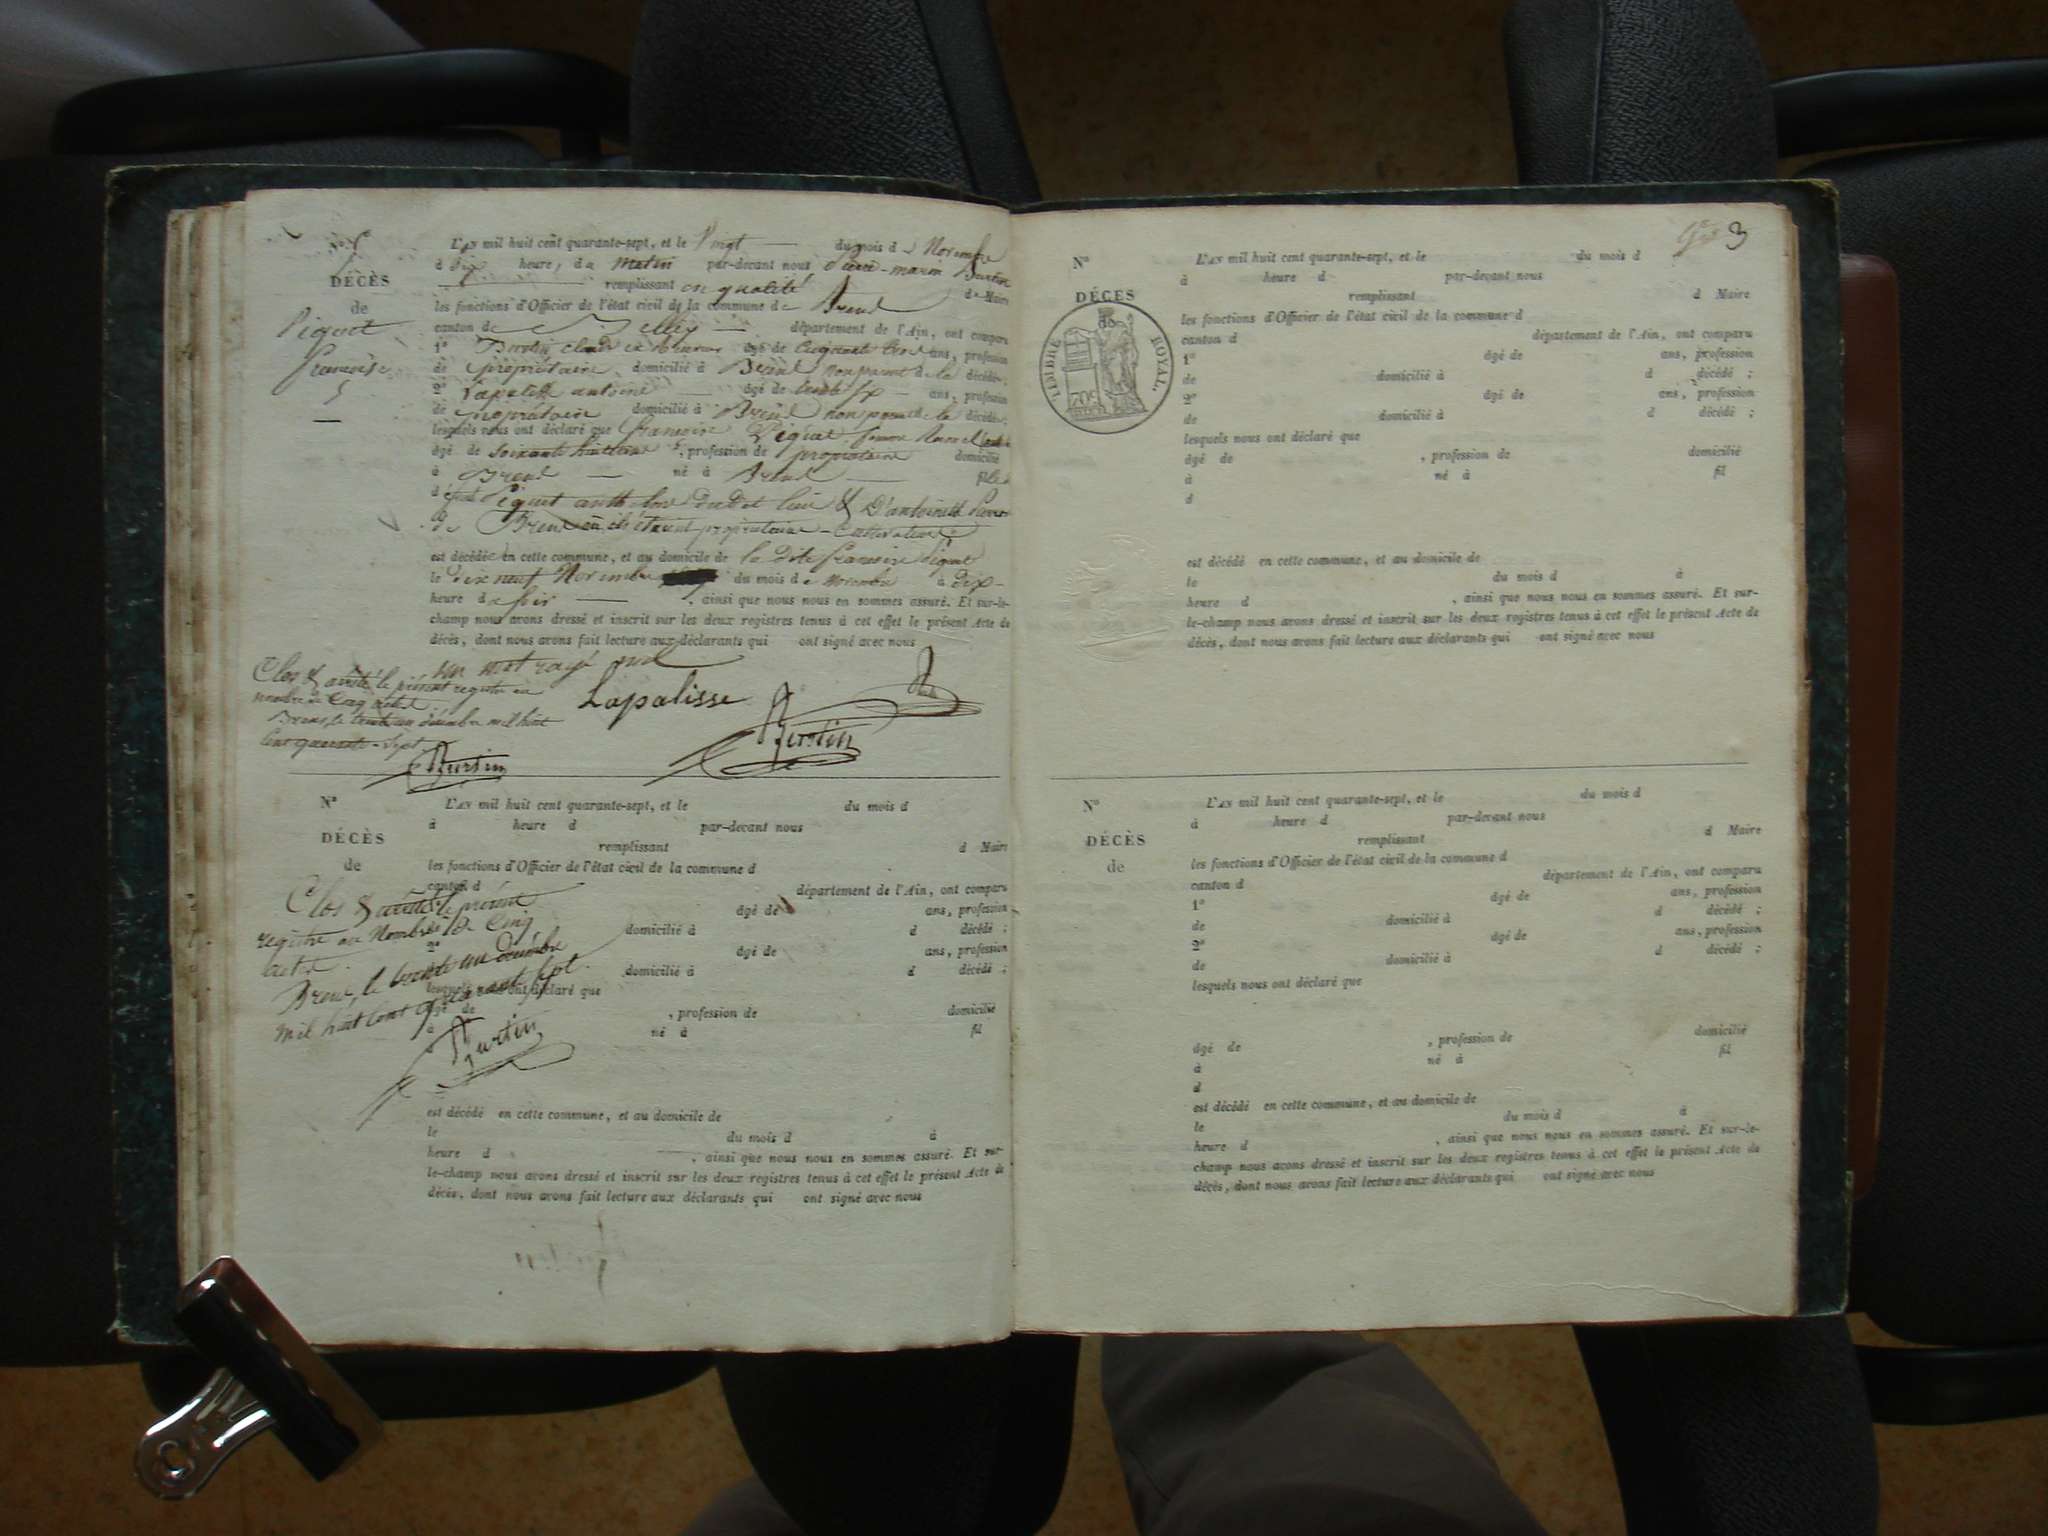 N° 5
DÉCÈS
de
Piquet
Françoise
5
L'AN mil huit cent quarante-sept, et le Vingt du mois de Novembre
à dix heure, du matin par-devant nous pierre-marin Burtin
remplissant en qualité de Maire
les fonctions d'Officier de l'état civil de la commune de Brend
canton de Belley département de l'Ain, ont comparu
1° Burtin claude agé de cinquante trois ans, profession
de propriétaire domicilié à Brend non parent de la décédée;
2° Lapalisse antoine agé de trente six ans, profession
de propriétaire domicilié à Brend non parent de la décédée;
lesquels nous ont déclaré que françoise Piquet femme
âgé de soixante huit ans, profession de propriétaire domicilié
à Brend né à Brend fille
de Piquet anthelme dudit lieu & D'antoinette
de Brend propriétaire cultivateur
est décédée en cette commune, et au domicile de la dite françoise Piquet
le dix neuf Novembre du mois de Novembre à dix
heure du soir, ainsi que nous nous en sommes assuré. Et sur-le-
champ nous avons dressé et inscrit sur les deux registres tenus à cet effet le présent Acte de
décès, dont nous avons fait lecture aux déclarants qui ont signé avec nous
un mot rayé nul
Clos & arrêté le présent registre au
nombre de Cinq actes
Brens, le trente un décembre mil huit
Cent quarante-Sept
Lapalisse
Burtin
Burtin
N°
DÉCÈS
de
L'AN mil huit cent quarante-sept, et le du mois d
à heure d par-devant nous
remplissant d Maire
les fonctions d'Officier de l'état civil de la commune d
canton d département de l'Ain, ont comparu
agé de ans, profession
domicilié à d décédé ;
2° agé de ans, profession
domicilié à d décédé ;
lesquels nous ont déclaré que
agé de , profession de domicilié
à né à fil
Clos & arrêté le présent
registre au Nombre de Cinq
actes.
Brens, le trente un décembre
mil huit Cent quarante sept.
Burtin
est décédé en cette commune, et au domicile de
le du mois d à
heure d , ainsi que nous nous en sommes assuré. Et sur-
le-champ nous avons dressé et inscrit sur les deux registres tenus à cet effet le présent Acte de
décès, dont nous avons fait lecture aux déclarants qui ont signé avec nous
3
N°
DÉCES
de
TIMBRE ROYAL.
L'AN mil huit cent quarante-sept, et le du mois d
à heure d par-devant nous
remplissant d Maire
les fonctions d'Officier de l'état civil de la commune d
canton d département de l'Ain, ont comparu
1° âgé de ans, profession
de domicilié à d décédé ;
2° âgé de ans, profession
de domicilié à d décédé ;
lesquels nous ont déclaré que
âgé de , profession de domicilié
à né à fil
d
est décédé en cette commune, et au domicile de
le du mois d à
heure d , ainsi que nous nous en sommes assuré. Et sur-
le-champ nous avons dressé et inscrit sur les deux registres tenus à cet effet le présent Acte de
décès, dont nous avons fait lecture aux déclarants qui ont signé avec nous
N°
DÉCÈS
de
L'AN mil huit cent quarante-sept, et le du mois d
à heure d par-devant nous
remplissant d Maire
les fonctions d'Officier de l'état civil de la commune d
canton d département de l'Ain, ont comparu
1° âgé de ans, profession
de domicilié à d décédé ;
2° âgé de ans, profession
de domicilié à d décédé ;
lesquels nous ont déclaré que
âgé de , profession de domicilié
à né à fil
d
est décédé en cette commune, et au domicile de
le du mois d à
heure d , ainsi que nous nous en sommes assuré. Et sur-le-
champ nous avons dressé et inscrit sur les deux registres tenus à cet effet le présent Acte de
décès, dont nous avons fait lecture aux déclarants qui ont signé avec nous